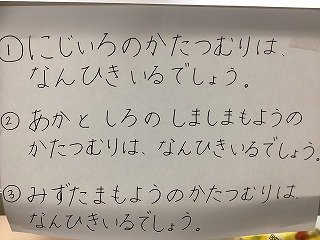 ① にじいろのかたつむりは、
なんひきいるでしょう。
② あかと しろの しましまもようの
かたつむりは、なんひきいるでしょう。
③ みずたまもようのかたつむりは、
なんひきいるでしょう。